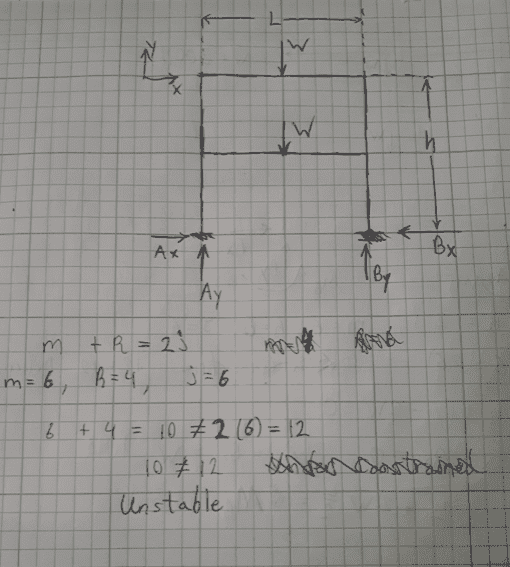 L
W
y
x
W
h
Ax
Bx
Ay
By
m + R = 2j
m=6, R=4, j=6
6 + 4 = 10 ≠ 2(6) = 12
10 ≠ 12
Unstable